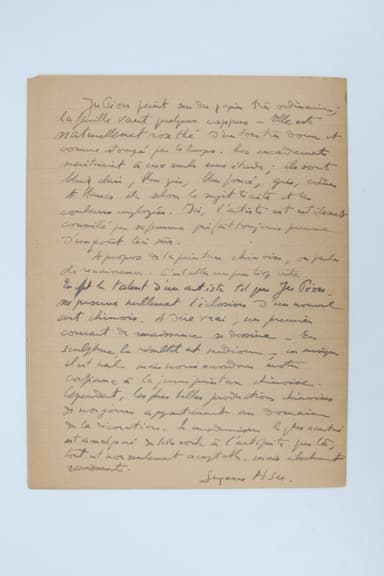 Ju Péon peint sur du papier très ordinaire;
la feuille vaut quelques coppers – Elle est
naturellement rosé d'un ton très doux et
comme estompé par le temps. Les encadrements
mériteraient à eux seuls une étude; ils sont
bleu clair, bleu gris, bleu foncé, gris, crème
et blancs et selon le sujet traité et les
couleurs employées. Ici, l'artiste est
conseillé par sa femme qui fait toujours preuve
d'un goût très sûr.
A propos de la peinture chinoise, on parle
de renaissance. C'est aller un peu trop vite
En fait le talent d'un artiste tel que Ju Péon,
ne prouve nullement l'éclosion d'un nouvel
art chinois. A dire vrai, un premier
courant de renaissance se dessine – En
sculpture le résultat est médiocre, en musique
il est nul mais nous accordons notre
confiance à la jeune peinture chinoise.
Cependant, les plus belles productions chinoises
de nos jours appartiennent au domaine
de la décoration. Le modernisme le plus accentué
est amalgamé de telle sorte à l'antiquité que le
tout est non seulement acceptable, mais absolument
ravissant.
Suzanne